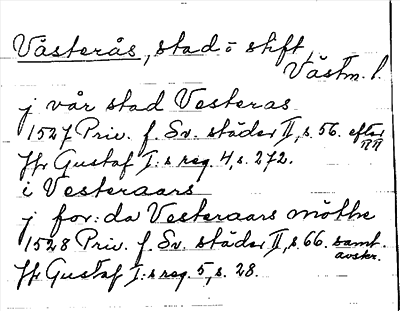 Västerås, stad o stift
Västm. l.
j vår stad Vesteras
1527 Priv. f. Sv. städer II, s. 56. efter RR
Jfr Gustaf I:s reg. 4, s. 272.
i Vesteraars
j for:da Vesteraars möthe
1528 Priv. f. Sv. städer II, s. 66. samt. avskr.
Jfr Gustaf I:s reg. 5, s. 28.